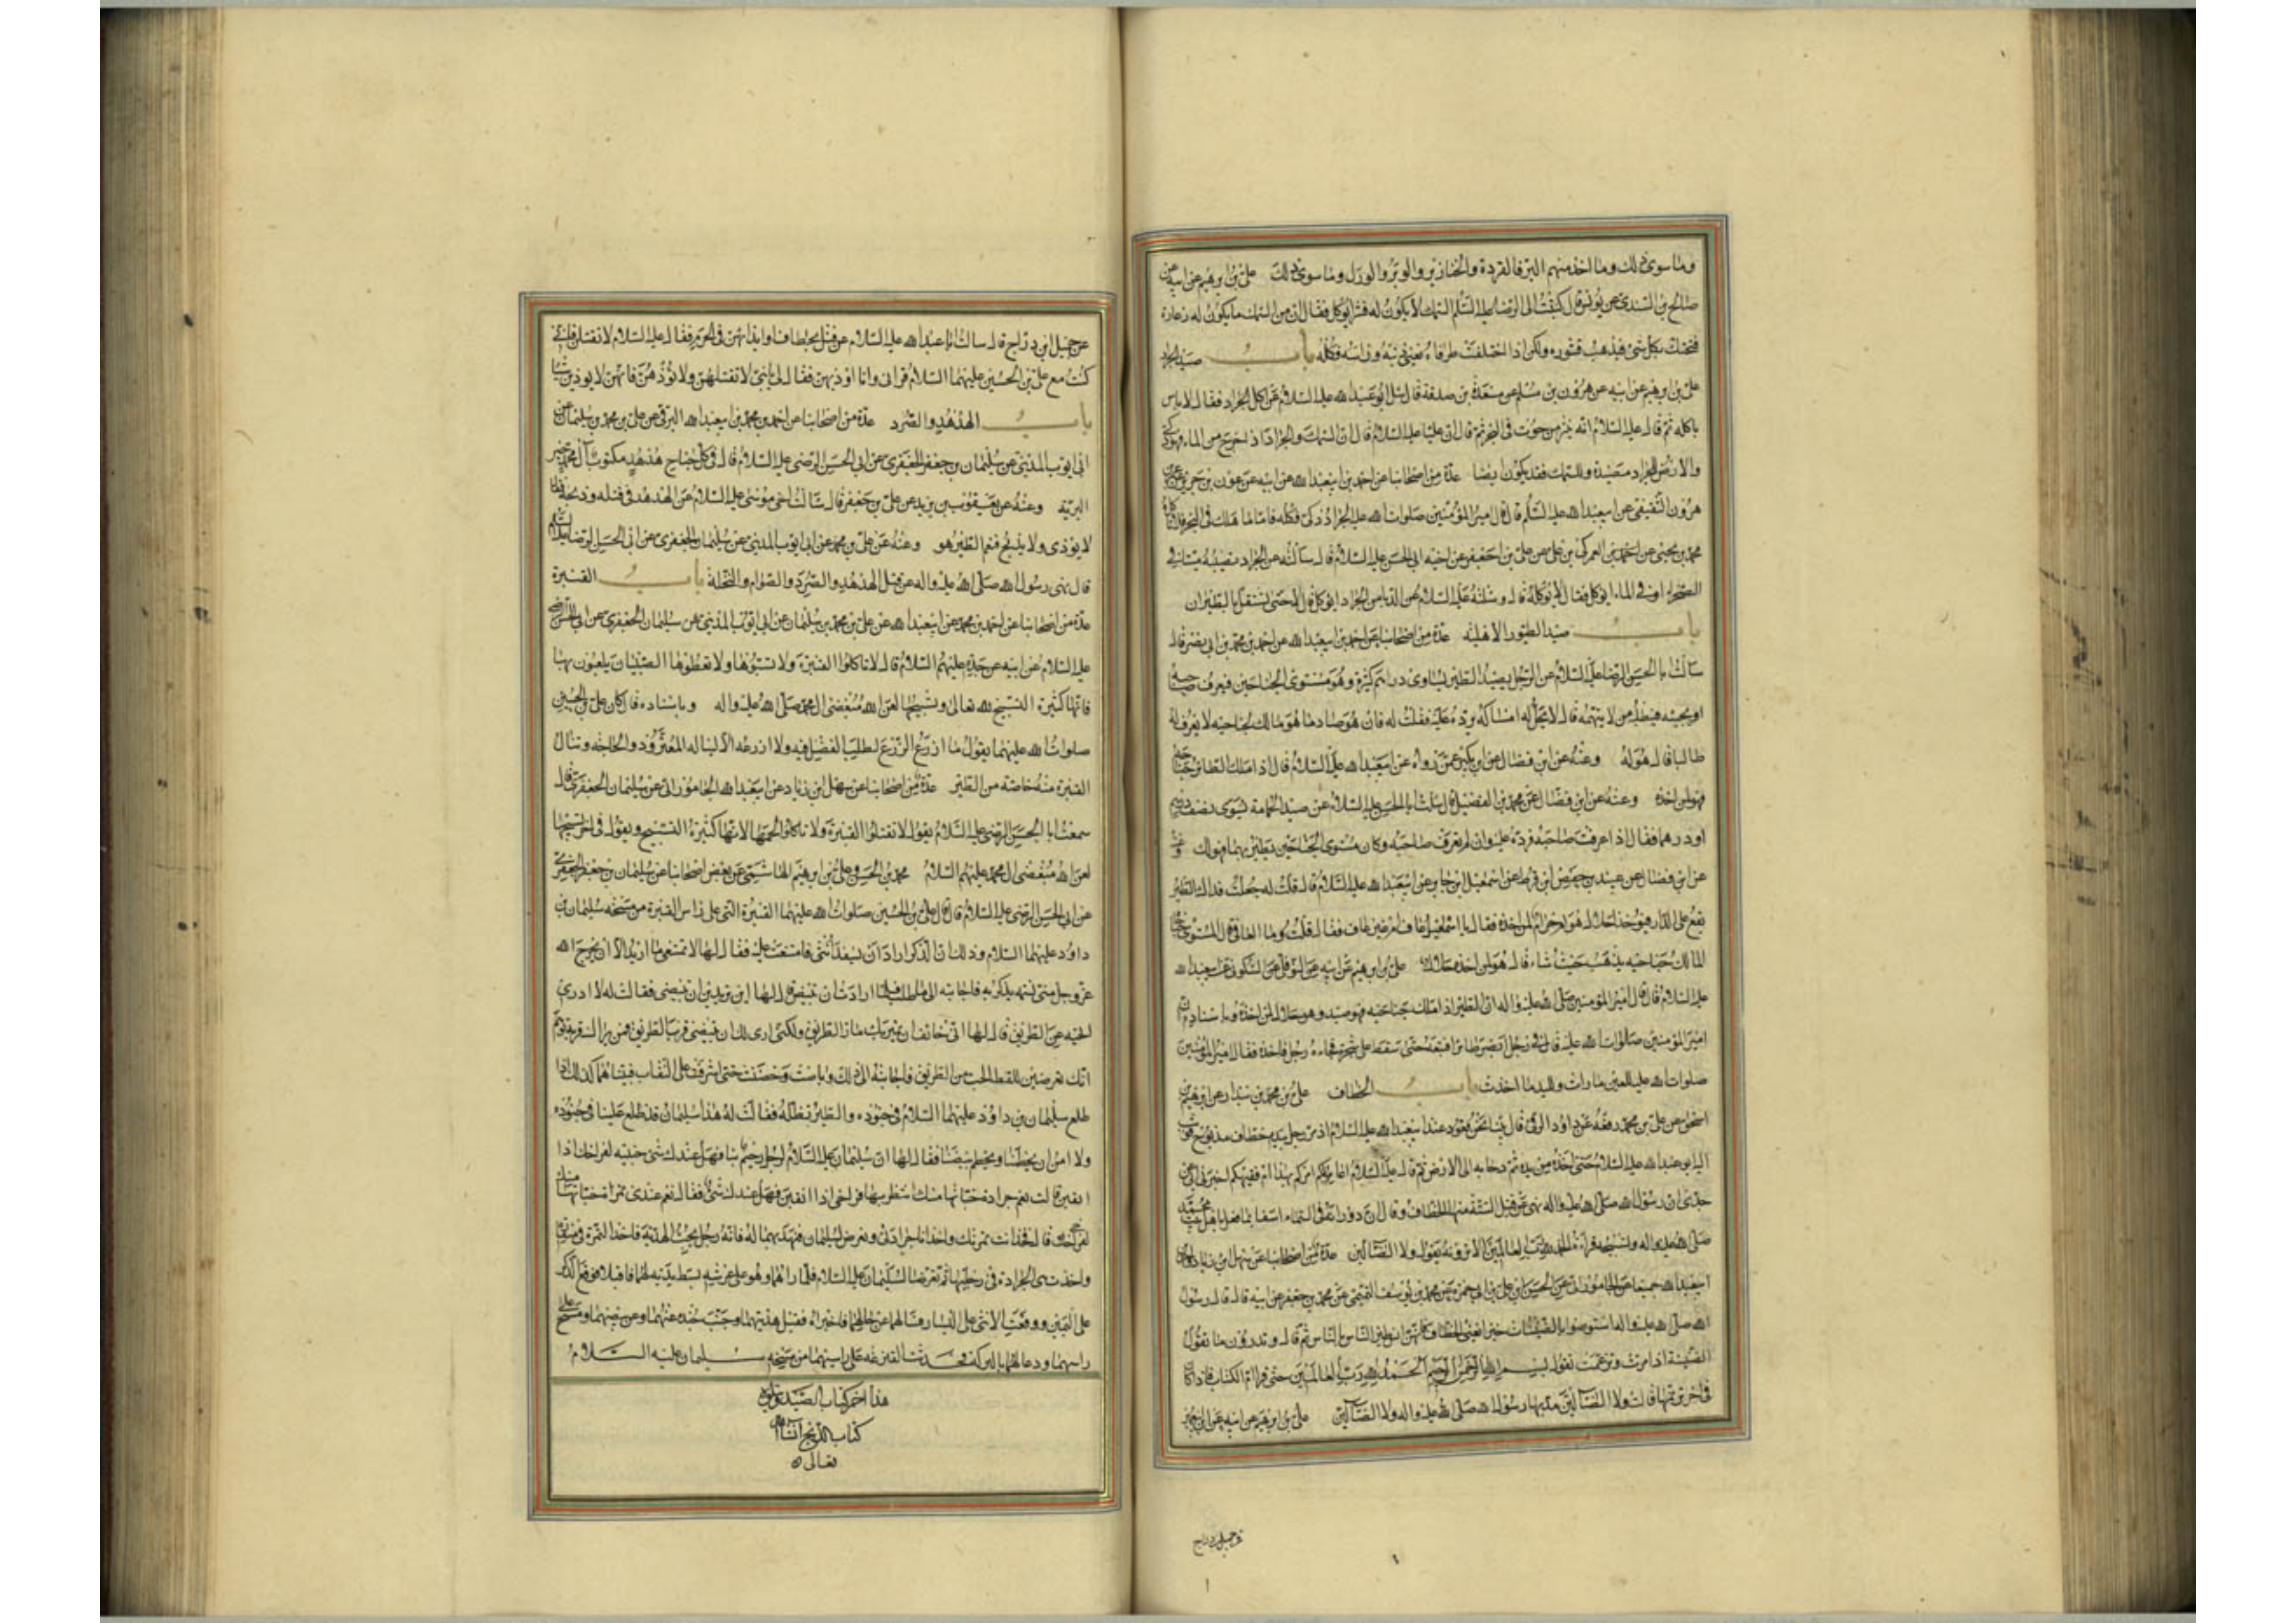 وما سوى ذلك وما اخذ منهم البر فالقردة والخنازير والوبر والورل وما سوى ذلك علي بن ابرهيم عن ابيه عن
صالح بن السندي عن يونس قال كتبت الى الرضا عليه السلم السمك لا يكون له قشر ايؤكل فقال ان من السمك ما يكون له زعارة
فتحتك بكل شئ فيذهب قشوره ولكن اذا اختلفت طرفاه يعني ذنبه وراسه فكله باب صيد الجراد
علي بن ابرهيم عن ابيه عن هرون بن مسلم عن مسعدة بن صدقة قال سئل ابو عبد الله عليه السلام عن اكل الجراد فقال لا باس
باكله ثم قال عليه السلام انه نثرة من حوت في البحر ثم قال ان عليا عليه السلام قال ان السمك والجراد اذا خرج من الماء فهو ذكي
والارض للجراد مصيدة وللسمك قد يكون ايضا عدة من اصحابنا عن احمد بن ابيعبد الله عن ابيه عن عون بن جرير عن
هرون الثقفي عن ابيعبد الله عليه السلم قال قال امير المؤمنين صلوات الله عليه الجراد ذكي فكله فاما ما هلك في البحر فلا تاكله
محمد بن يحيى عن احمد بن العمركي بن علي عن علي بن جعفر عن اخيه ابي الحسن عليه السلام قال سالته عن الجراد نصيبه ميتا في
الصحراء او في الماء ايؤكل فقال لا تاكله قال وسئلته عليه السلام عن الدبا من الجراد ايؤكل قال لا حتى يستقل بالطيران
باب صيد الطيور الاهلية عدة من اصحابنا عن احمد بن ابيعبد الله عن احمد بن محمد بن ابي نصر قال
سالت ابا الحسن الرضا عليه السلام عن الرجل يصيد الطير يساوي دراهم كثيرة وهو مستوي الجناحين فيعرف صاحبه
او يجيئه فيطلبه من لا يتهمه قال لا يحل له امساكه يرده عليه فقلت له فان هو صاد ما هو مالك لجناحيه لا يعرف له
طالبا قال هو له وعنه عن ابن فضال عن ابن بكير عمن رواه عن ابيعبد الله عليه السلام قال اذا ملك الطائر جناحه
فهو لمن اخذه وعنه عن ابن فضال عن محمد بن الفضيل قال سالت ابا الحسن عليه السلام عن صيد الحمامة تسوى نصف درهم
او درهما فقال اذا عرفت صاحبه فرده عليه وان لم تعرف صاحبه وكان مستوي الجناحين يطير بهما فهو لك وعنه
عن ابن فضال عن عبيد بن حفص ابن قرط عن اسمعيل ابن جابر عن ابيعبد الله عليه السلام قال قلت له جعلت فداك الطير
يقع على الدار فيؤخذ احلال هو ام حرام لمن اخذه فقال يا اسمعيل عاف ام غير عاف فقال قلت وما العافي قال المستوي جناحاه
المالك جناحيه يذهب حيث شاء قال هو لمن اخذه حلال علي بن ابرهيم عن ابيه عن النوفلي عن السكوني عن ابيعبد الله
عليه السلام قال قال امير المؤمنين صلى الله عليه واله ان الطير اذا ملك جناحيه فهو صيد وهو حلال لمن اخذه وباسناده ان
امير المؤمنين صلوات الله عليه قال في رجل ابصر طائرا فتبعه حتى سقط على شجرة فجاءه رجل فاخذه فقال امير المؤمنين
صلوات الله عليه للعين ما رات ولليد ما اخذت باب الخطاف علي بن محمد بن بندار عن ابرهيم بن
اسحق عن علي بن محمد رفعه عن داود الرقي قال بينا نحن قعود عند ابيعبد الله عليه السلام اذ مر رجل بيده خطاف مذبوح فوثب
اليه ابو عبد الله عليه السلام حتى اخذه من يده ثم دحا به الى الارض ثم قال عليه السلام اعالمكم امركم بهذا ام فقيهكم اخبرني ابي عن
جدي ان رسول الله صلى الله عليه واله نهى عن قتل الستة منها الخطاف وقال ان دورانه في السماء اسفا لما فعل باهل بيت محمد
صلى الله عليه واله وتسبيحه قراءة الحمد لله رب العالمين الا ترونه يقول ولا الضالين عدة من اصحابنا عن سهل بن زياد عن
ابيعبد الله جميعا عن الجاموراني عن الحسن بن علي بن ابي حمزة عن محمد بن يوسف التميمي عن محمد بن جعفر عن ابيه قال قال رسول
الله صلى الله عليه واله استوصوا بالصنينات خيرا يعني الخطاف فانهن انس طير الناس بالناس ثم قال وتدرون ما تقول
الصنينة اذا مرت وترنمت تقول بسم الله الرحمن الرحيم الحمد لله رب العالمين حتى قرا ام الكتاب فاذا كان
في اخر ترنمها قالت ولا الضالين مد بها رسول الله صلى الله عليه واله ولا الضالين علي بن ابرهيم عن ابيه عن ابن ابي عمير
عن جميل بن دراج
عن جميل ابن دراج قال سالت ابا عبد الله عليه السلام عن قتل الخطاف او ايذائهن في الحرم فقال عليه السلام لا تقتلن فاني
كنت مع علي بن الحسين عليهما السلام فراني وانا اوذيهن فقال لي يا بني لا تقتلهن ولا تؤذهن فانهن لا يوذين شيئا
باب الهدهد والصرد عدة من اصحابنا عن احمد بن محمد بن ابيعبد الله البرقي عن علي بن محمد بن سليمان عن
ابي ايوب المديني عن سليمان بن جعفر الجعفري عن ابي الحسن الرضي عليه السلام قال في كل جناح هدهد مكتوب آل محمد خير
البرية وعنه عن يعقوب بن يزيد عن علي بن جعفر قال سالت اخي موسى عليه السلام عن الهدهد في قتله وذبحه فقال
لا يوذى ولا يذبح فنعم الطير هو وعنه عن علي بن محمد عن ابي ايوب المديني عن سليمان الجعفري عن ابي الحسن الرضا عليه السلم
قال نهى رسول الله صلى الله عليه واله عن قتل الهدهد والصرد والصوام والنحلة باب القنبرة
عدة من اصحابنا عن احمد بن محمد عن ابيعبد الله عن علي بن محمد بن سليمان عن ابي ايوب المديني عن سليمان الجعفري عن ابي الحسن الرضي
عليه السلام عن ابيه عن جده عليهم السلام قال لا تاكلوا القنبرة ولا تسبوها ولا تعطوها الصبيان يلعبون بها
فانها كثيرة التسبيح لله تعالى وتسبيحها لعن الله مبغضي آل محمد صلى الله عليه واله وباسناده قال كان علي بن الحسين
صلوات الله عليهما يقول ما ازرع الزرع لطلب الفضل فيه ولا ازرعه الا ليناله المعتر وذو الحاجة وتنال
القنبرة منه خاصة من الطير عدة من اصحابنا عن سهل ابن زياد عن ابيعبد الله الجاموراني عن سليمان الجعفري قال
سمعت ابا الحسن الرضي عليه السلام يقول لا تقتلوا القنبرة ولا تاكلوا لحمها لانها كثيرة التسبيح ويقول في اخر تسبيحها
لعن الله مبغضي ال محمد عليهم السلام محمد بن الحسن وعلي بن ابرهيم الهاشمي عن بعض اصحابنا عن سليمان بن جعفر الجعفري
عن ابي الحسن الرضي عليه السلام قال قال علي بن الحسين صلوات الله عليهما القنبرة التي على راس القنبرة من مسحة سليمان بن
داود عليهما السلام وذلك ان الذكر اراد ان يسفد انثى فامتنعت عليه فقال لها لا تمتنعي ما اريد الا ان يخرج الله
عز وجل مني نسمة يذكر به فاجابته الى ما طلب فلما ارادت ان تبيض قال لها اين تريدين ان تبيضي فقالت له لا ادري
انحيه عن الطريق قال لها اني خائف ان يمر بك مار الطريق ولكني ارى لك ان تبيضي قرب الطريق فمن يراك قربه توهم
انك تعرضين للقط الحب من الطريق فاجابته الى ذلك وباضت وحضنت حتى اشرفت على النقاب فبينا هما كذلك اذا
طلع سليمان بن داود عليهما السلام في جنوده والطير تظله فقالت له هذا سليمان قد طلع علينا في جنوده
ولا امن ان يحطمنا ويحطم بيضنا فقال لها ان سليمان عليه السلام لرجل رحيم بنا فهل عندك شئ خبيته لفراخك اذا
نقبن قالت نعم جرادة خباتها منك انتظر بها فراخي اذا نقبن فهل عندك شئ فقال نعم عندي تمرة خباتها منك
لفراخك قالت فخذ انت تمرتك واخذ انا جرادتي ونعرض لسليمان فنهديهما له فانه رجل يحب الهدية فاخذ التمرة في منقاره
واخذت هي الجرادة في رجليها ثم تعرضا لسليمان عليه السلام فلما راهما وهو على عرشه بسط يديه لهما فاقبلا فوقع الذكر
على اليمين ووقعت الانثى على اليسار وسالهما عن حالهما فاخبراه فقبل هديتهما وجنب جنده عنهما وعن بيضهما ومسح على
راسهما ودعا لهما بالبركة فحدثت القنزعة على راسهما من مسحة سليمان عليه السلام
هذا اخر كتاب الصيد ويتلوه
كتاب الذبائح انشاء الله
تعالى